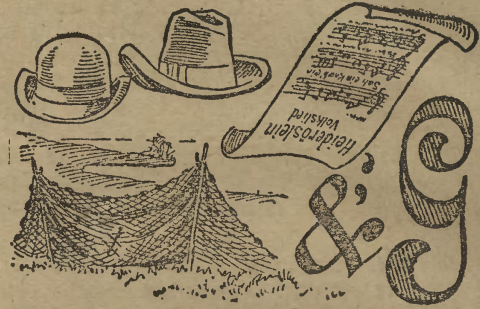 Heideröslein
Volkslied
Sah ein Knab ein
&’’
G